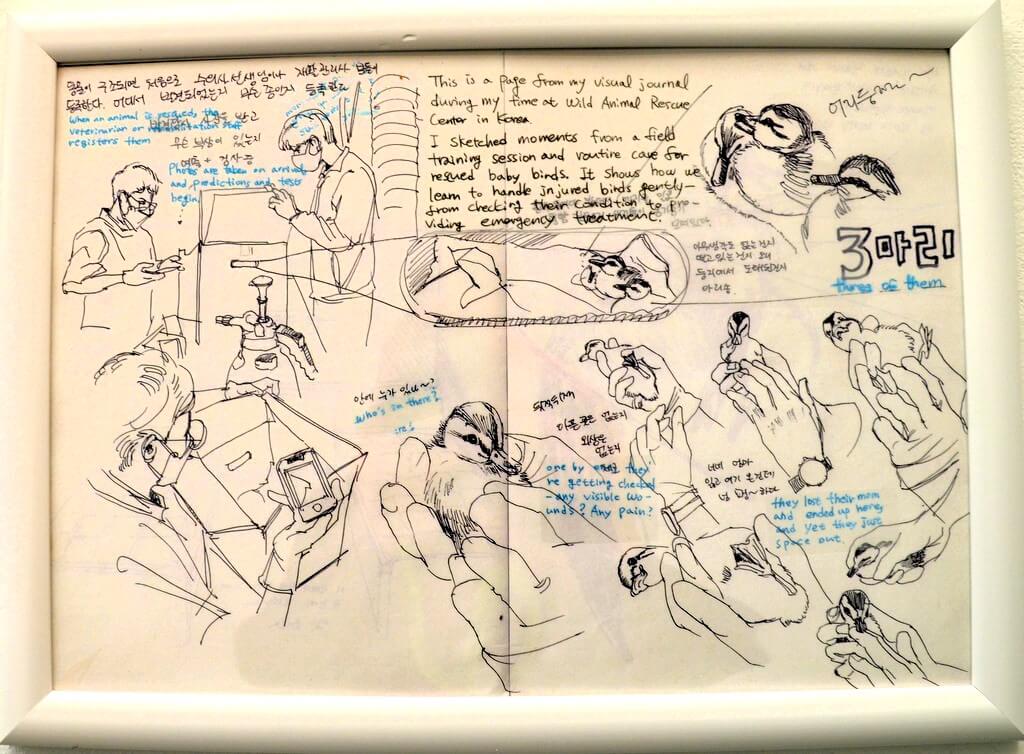 동물이 구조되면 처음으로 수의사 선생님이나 재활관리사 분들이
등록한다. 어디서 발견되었는지 무슨 종인지 등록한
When an animal is rescued, the
veterinarian or rehabilitation staff
registers them
무슨 부상이 있는지
예측 + 검사 중
Photos are taken on arrival
and predictions and tests
begin.
This is a page from my visual journal
during my time at Wild Animal Rescue
Center in Korea
I sketched moments from a field
training session and routine care for
resued baby birds. It shows how we
learn to handle injured birds gently—
from checking their condition to pro-
viding emergency treatment.
어리둥절~
3마리
three of them
아무생각도 없는건지
떨고 있는건지 모를
둥지에서 도래된건지
아리송.
안에 누가 있나~?
Who's in there?
아픈 곳은 없는지
외상은
없는지
one by one they
're getting checked
- any visible wo-
unds? Any pain?
너네 엄마
잃고 여기 온건데
넘 멍~하다
they lost their mom
and ended up here,
and yet they just
space out.